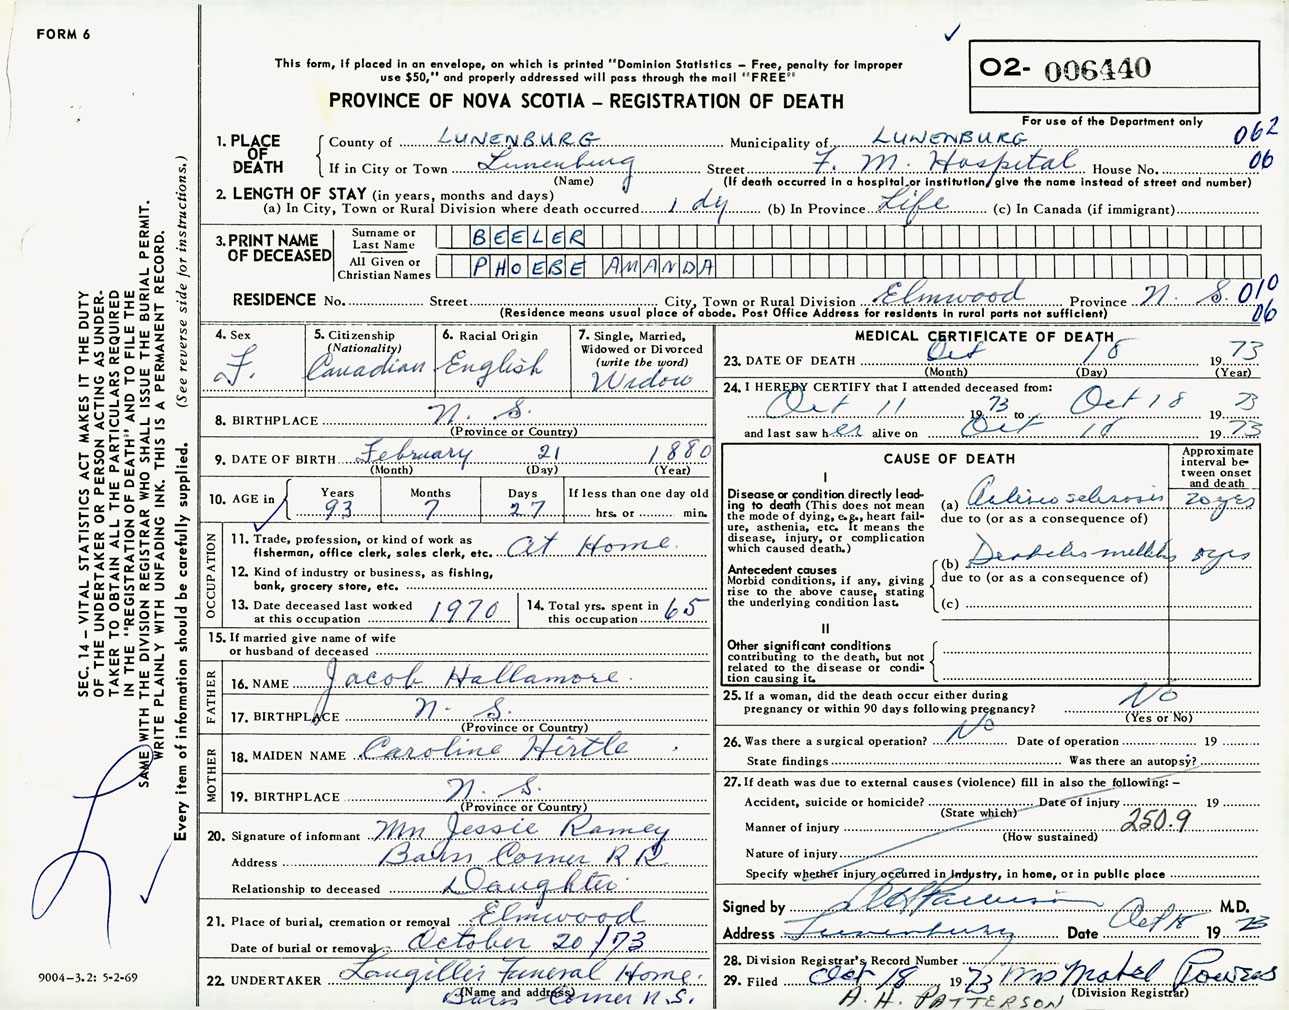 FORM 6
This form, if placed in an envelope, on which is printed "Dominion Statistics – Free, penalty for improper
use $50," and properly addressed will pass through the mail "FREE"
PROVINCE OF NOVA SCOTIA – REGISTRATION OF DEATH
O2- 006440
For use of the Department only
1. PLACE OF DEATH
County of LUNENBURG Municipality of LUNENBURG 062
If in City or Town Lunenburg Street F. M. Hospital House No. 06
(Name) (If death occurred in a hospital or institution, give the name instead of street and number)
2. LENGTH OF STAY (in years, months and days)
(a) In City, Town or Rural Division where death occurred 1 dy (b) In Province Life (c) In Canada (if immigrant)
3. PRINT NAME OF DECEASED
Surname or Last Name BEELER
All Given or Christian Names PHOEBE AMANDA
RESIDENCE No. Street City, Town or Rural Division Elmwood Province N. S. 010
(Residence means usual place of abode. Post Office Address for residents in rural parts not sufficient) 06
4. Sex F.
5. Citizenship (Nationality) Canadian
6. Racial Origin English
7. Single, Married, Widowed or Divorced (write the word) Widow
8. BIRTHPLACE N. S.
(Province or Country)
9. DATE OF BIRTH February 21 1880
(Month) (Day) (Year)
10. AGE in Years 93 Months 7 Days 27 If less than one day old hrs. or min.
OCCUPATION
11. Trade, profession, or kind of work as
fisherman, office clerk, sales clerk, etc. At Home.
12. Kind of industry or business, as fishing,
bank, grocery store, etc.
13. Date deceased last worked at this occupation 1970
14. Total yrs. spent in this occupation 65
15. If married give name of wife
or husband of deceased
FATHER
16. NAME Jacob Hallamore.
17. BIRTHPLACE N. S.
(Province or Country)
MOTHER
18. MAIDEN NAME Caroline Hirtle
19. BIRTHPLACE N. S.
(Province or Country)
20. Signature of informant Mrs Jessie Ramey
Address Barss Corner R R
Relationship to deceased Daughter
21. Place of burial, cremation or removal Elmwood
Date of burial or removal October 20/73
22. UNDERTAKER Funeral Home.
(Name and address) Barss Corner N.S.
MEDICAL CERTIFICATE OF DEATH
23. DATE OF DEATH Oct 18 1973
(Month) (Day) (Year)
24. I HEREBY CERTIFY that I attended deceased from:
Oct 11 1973 to Oct 18 1973
and last saw her alive on Oct 18 1973
CAUSE OF DEATH
Approximate interval between onset and death
I
Disease or condition directly leading to death (This does not mean the mode of dying, e.g., heart failure, asthenia, etc. It means the disease, injury, or complication which caused death.)
(a) Arteriosclerosis 20 yrs
due to (or as a consequence of)
(b) Diabetes mellitus yrs
due to (or as a consequence of)
Antecedent causes
Morbid conditions, if any, giving rise to the above cause, stating the underlying condition last.
(c)
II
Other significant conditions
contributing to the death, but not related to the disease or condition causing it.
25. If a woman, did the death occur either during
pregnancy or within 90 days following pregnancy? No
(Yes or No)
26. Was there a surgical operation? No Date of operation 19
State findings Was there an autopsy?
27. If death was due to external causes (violence) fill in also the following:–
Accident, suicide or homicide? Date of injury 19
(State which)
Manner of injury 250.9
(How sustained)
Nature of injury
Specify whether injury occurred in Industry, in home, or in public place
Signed by M.D.
Address Lunenburg Date Oct 18 1973
28. Division Registrar's Record Number
29. Filed Oct 18 1973 Mrs Mabel
(Division Registrar)
A. H. PATTERSON
SEC. 14 – VITAL STATISTICS ACT MAKES IT THE DUTY
OF THE UNDERTAKER OR PERSON ACTING AS UNDER-
TAKER TO OBTAIN ALL THE PARTICULARS REQUIRED
IN THE "REGISTRATION OF DEATH" AND TO FILE THE
SAME WITH THE DIVISION REGISTRAR WHO SHALL ISSUE THE BURIAL PERMIT.
WRITE PLAINLY WITH UNFADING INK. THIS IS A PERMANENT RECORD.
Every item of information should be carefully supplied. (See reverse side for instructions.)
9004-3.2: 5-2-69